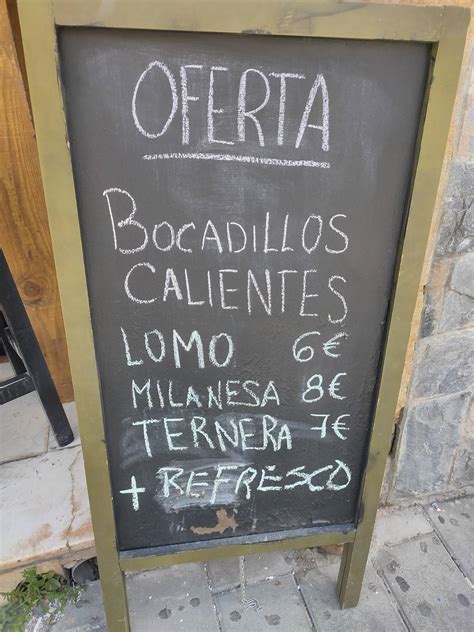 OFERTA
BOCADILLOS
CALIENTES
LOMO 6€
MILANESA 8€
TERNERA 7€
+ REFRESCO